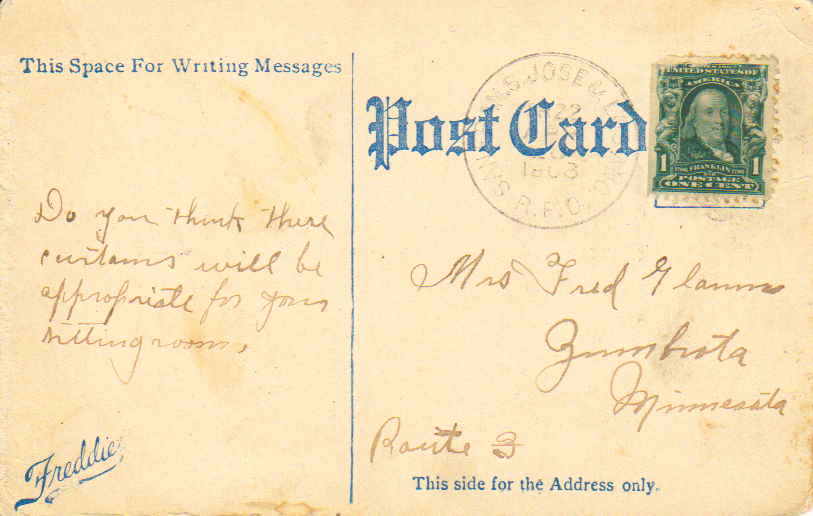 This Space For Writing Messages
Post Card
JOSE
22
R.P.O.
UNITED STATES OF
AMERICA
1 FRANKLIN 1
POSTAGE
ONE CENT
Do you think these
curtains will be
appropriate for your
sitting room.
Freddie
Mrs Fred
Zumbrota
Minnesota
Route 3
This side for the Address only.